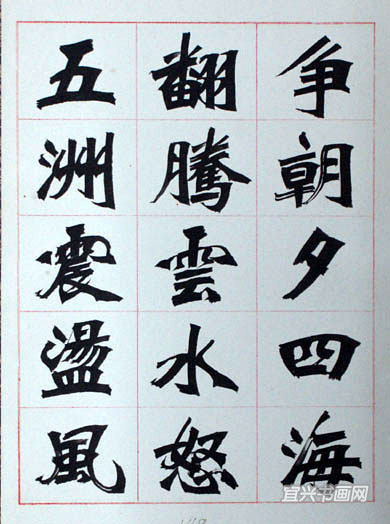 争朝夕四海
翻騰雲水怒
五洲震盪風
宜兴书画网